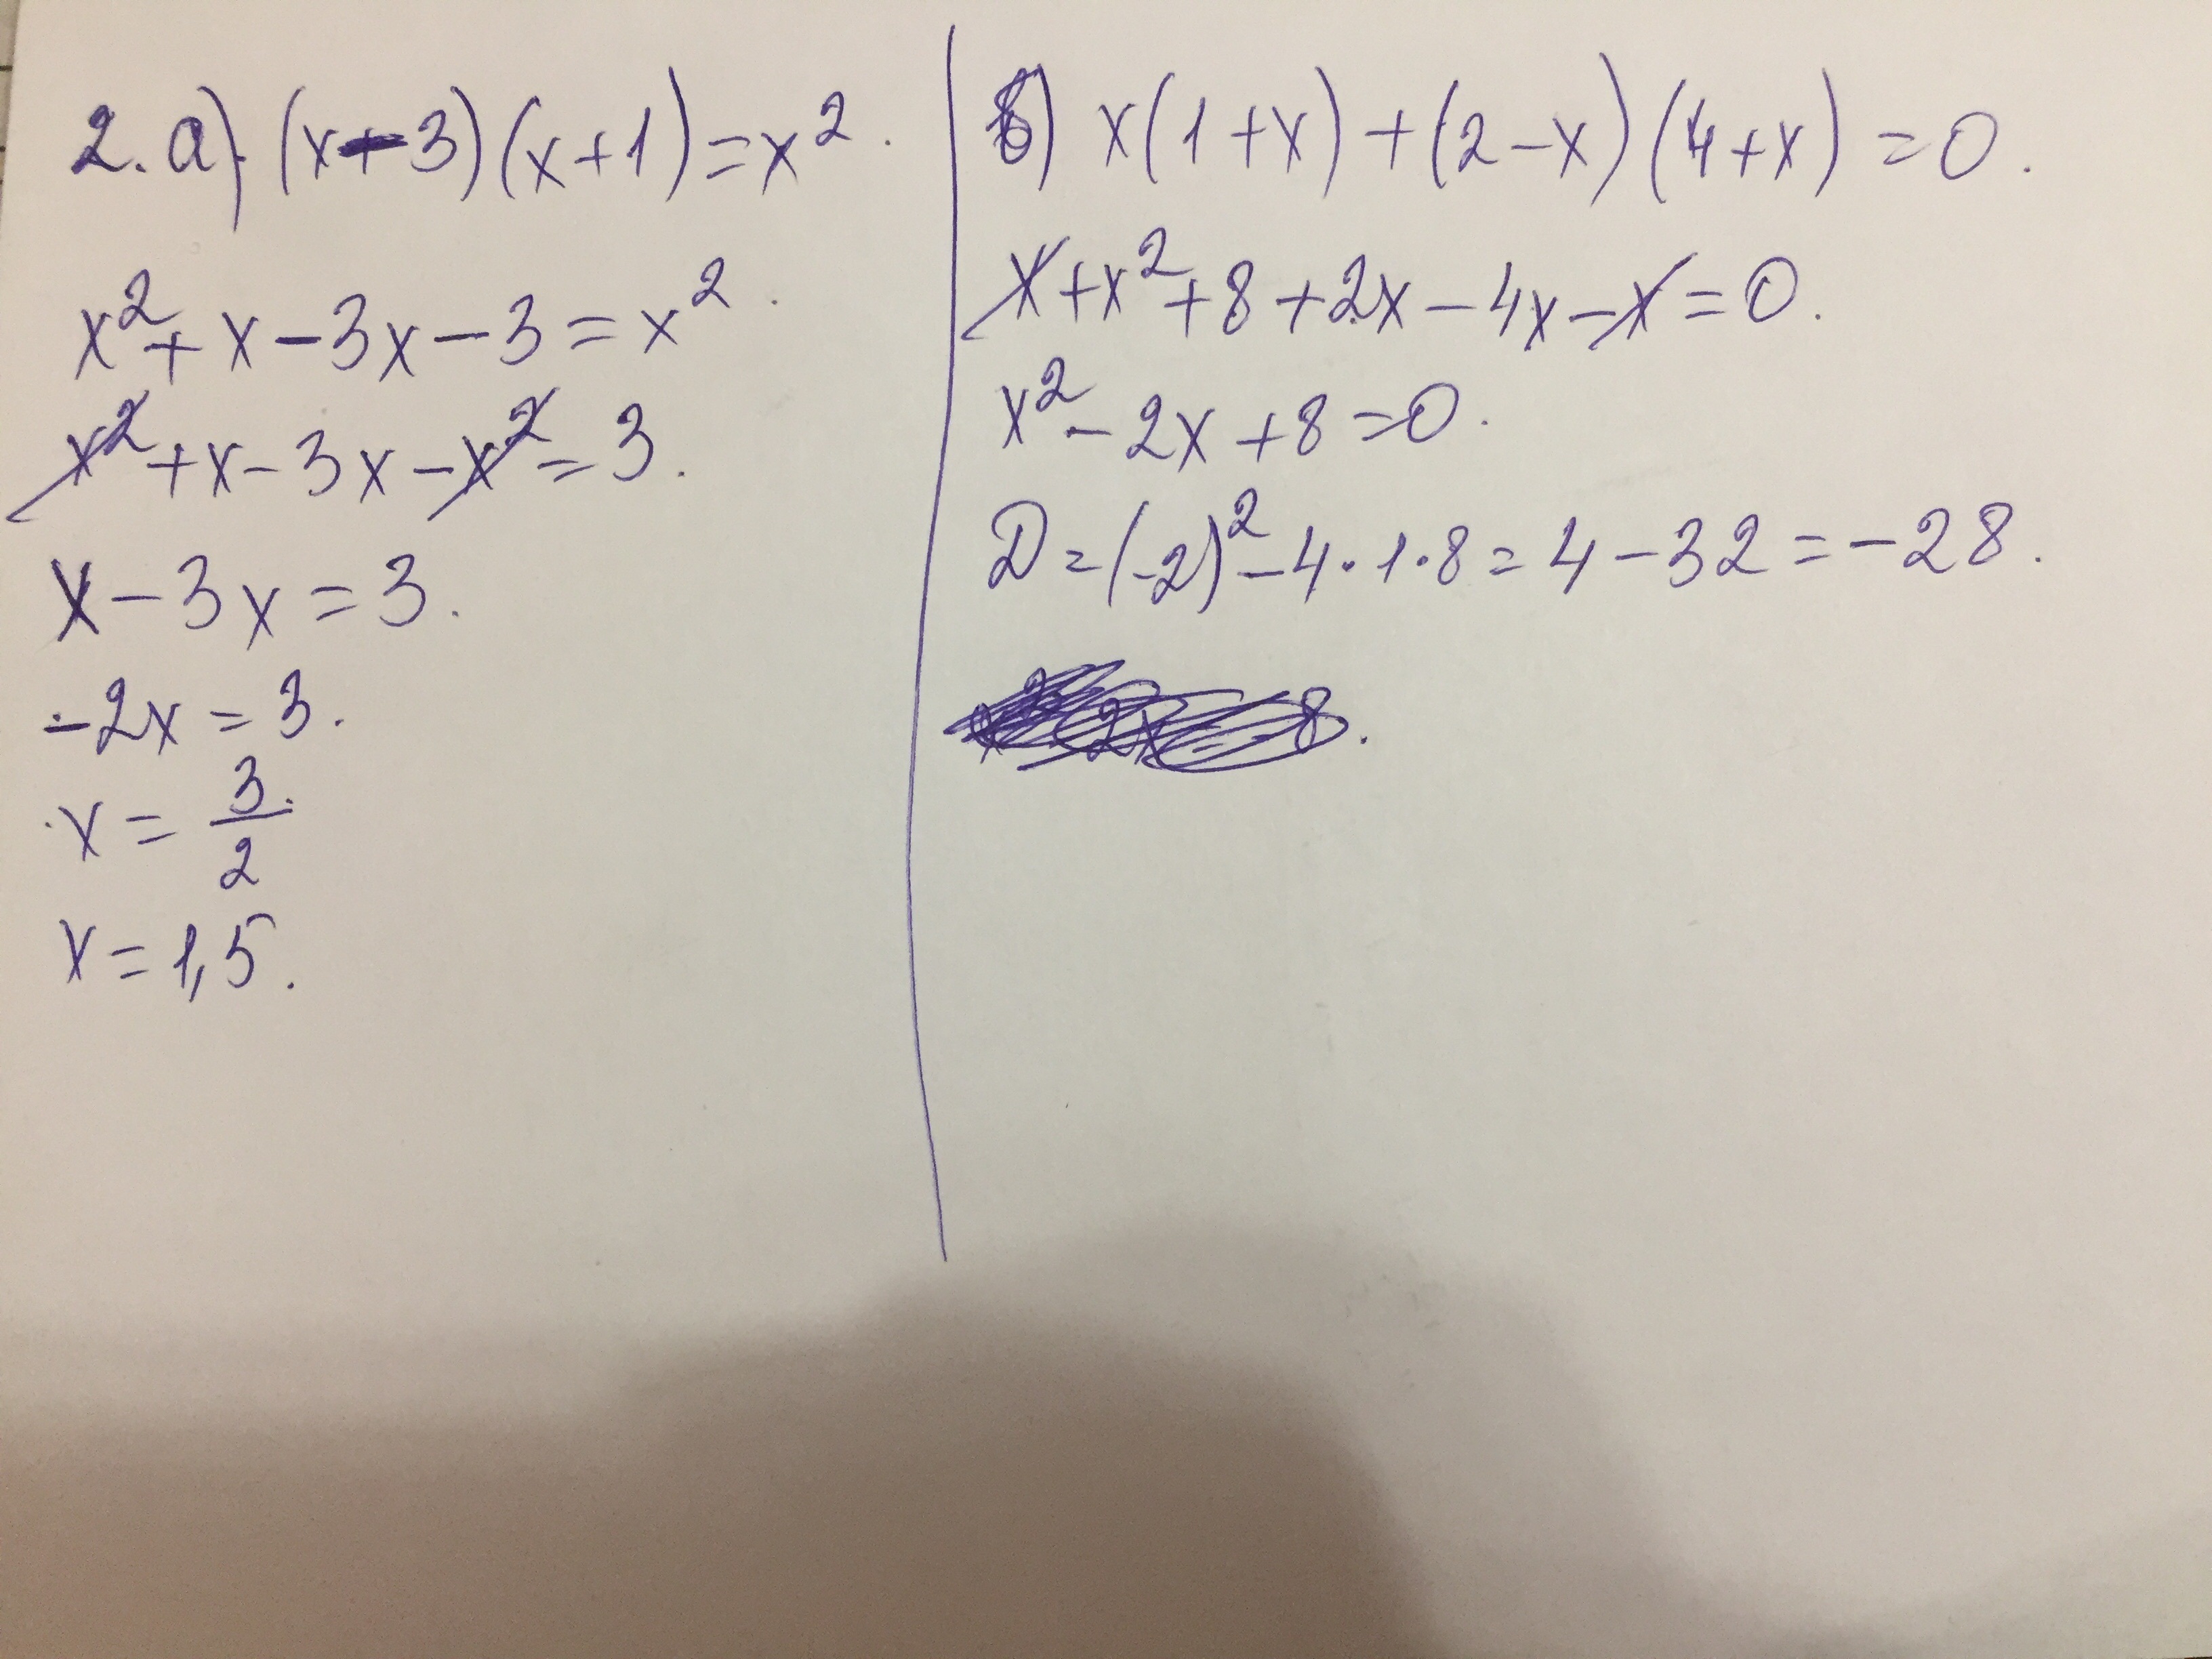 2. а) (x-3)(x+1)=x².
x²+x-3x-3=x².
x²+x-3x-x²=3.
x-3x=3.
-2x=3.
x=3/2
x=1,5.
б) x(1+x)+(2-x)(4+x)=0.
x+x²+8+2x-4x-x=0.
x²-2x+8=0.
D=(-2)²-4·1·8=4-32=-28.